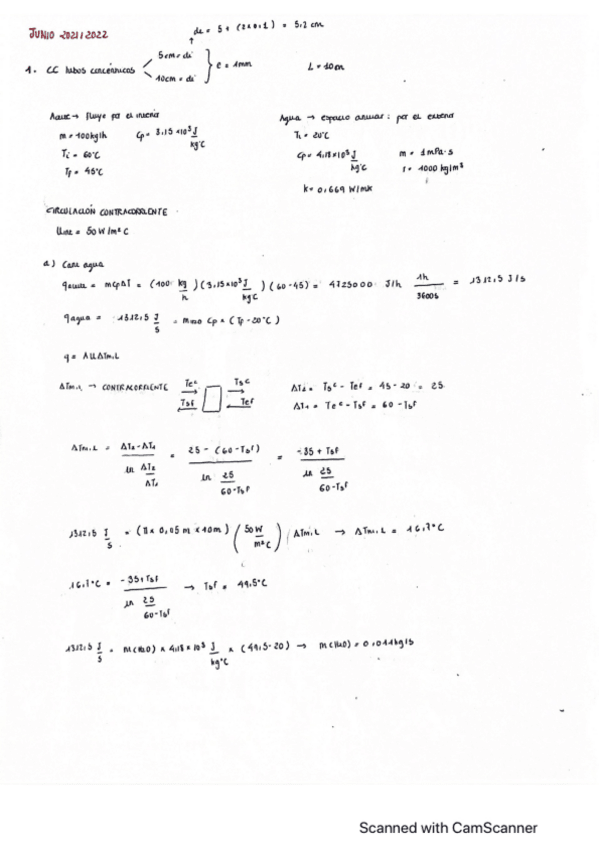 JUNIO 2021/2022
de = 5 + (2×0,1) = 5,2 cm
1. CC tubos concéntricos
5cm = di
10cm = di
e = 1mm
L = 10m
Aceite → Fluye por el interior
m = 100kg/h Cp = 3,15×10³ J/kgºC
Ti = 60ºC
Tf = 45ºC
Agua → espacio anular: por el exterior
Ti = 20ºC
Cp = 4,18×10³ J/kgºC m = 1mPa·s
ρ = 1000 kg/m³
k = 0,669 W/mK
CIRCULACIÓN CONTRACORRIENTE
50 W/m²C
a) agua
= mCpΔT = (100 kg/h)(3,15×10³ J/kgC)(60-45) = 4725000 J/h 1h/3600s = 1312,5 J/s
qagua = 1312,5 J/s = mH2O Cp × (Tf - 20ºC)
q = AUΔTm,L
ΔTm,L → CONTRACORRIENTE
Teᶜ Tsᶜ
Tsf Tef
ΔT2 = Tsᶜ - Tef = 45 - 20 = 25
ΔT1 = Teᶜ - Tsf = 60 - Tsf
ΔTm,L = ΔT2 - ΔT1 / ln ΔT2/ΔT1 = 25 - (60 - Tsf) / ln 25/60-Tsf = -35 + Tsf / ln 25/60-Tsf
1312,5 J/s = (π × 0,05 m × 10m) (50W/m²C) ΔTm,L → ΔTm,L = 16,7ºC
16,7ºC = -35+Tsf / ln 25/60-Tsf → Tsf = 49,5ºC
1312,5 J/s = m(H2O) × 4,18 × 10³ J/kgºC × (49,5 - 20) → m(H2O) = 0,011kg/s
Scanned with CamScanner